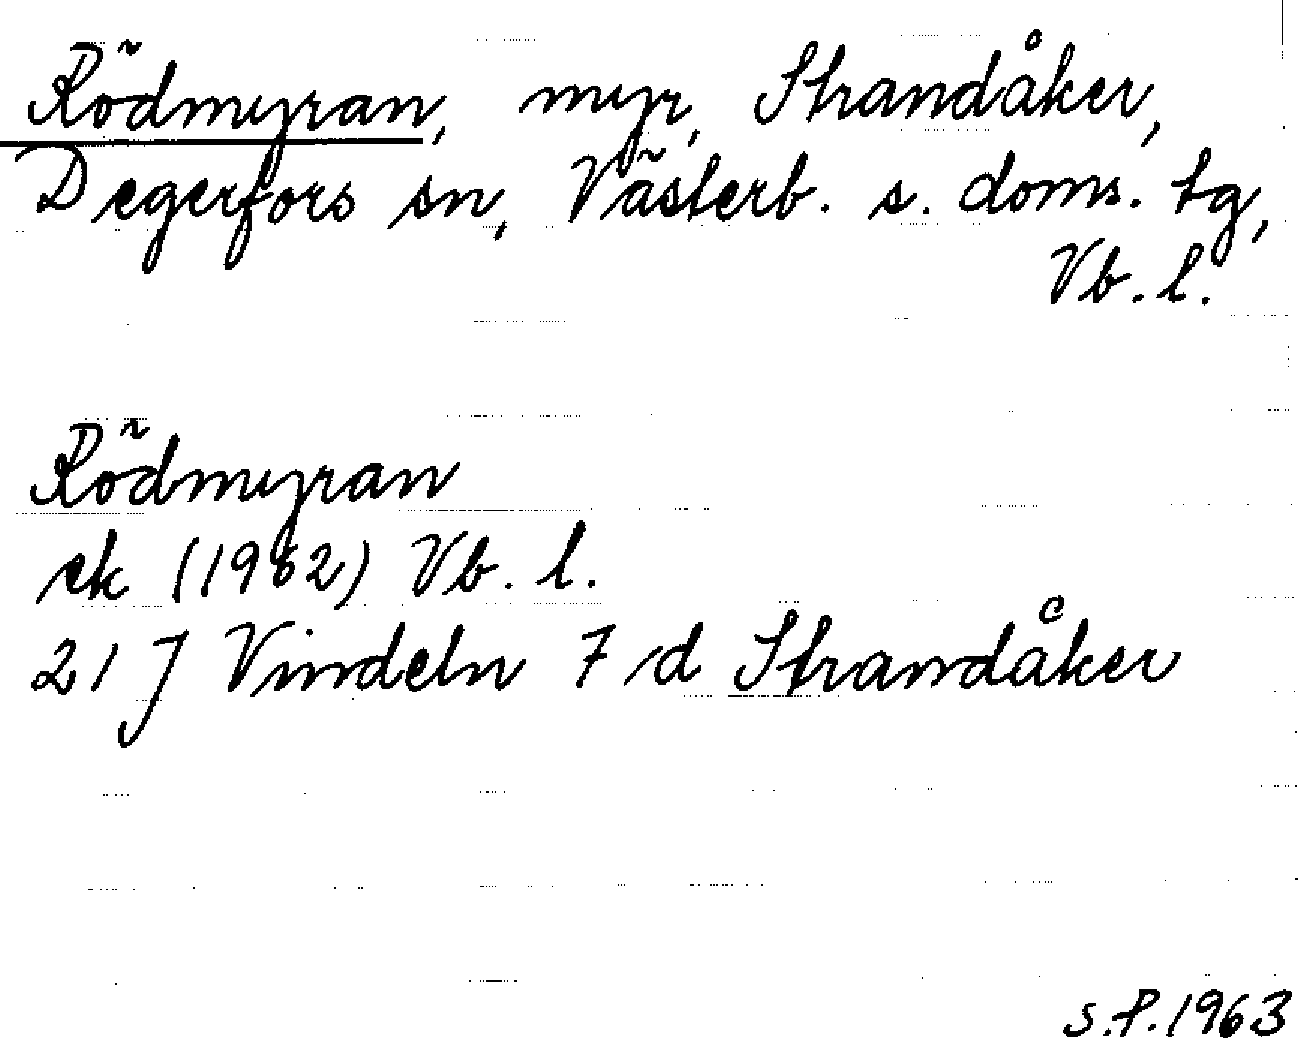 Rödmyran, myr, Strandåker,
Degerfors sn, Västerb. s. doms. tg,
Vb. l.
Rödmyran
ek (1962) Vb. l.
21 J Vindeln 7 d Strandåker
S.P. 1963